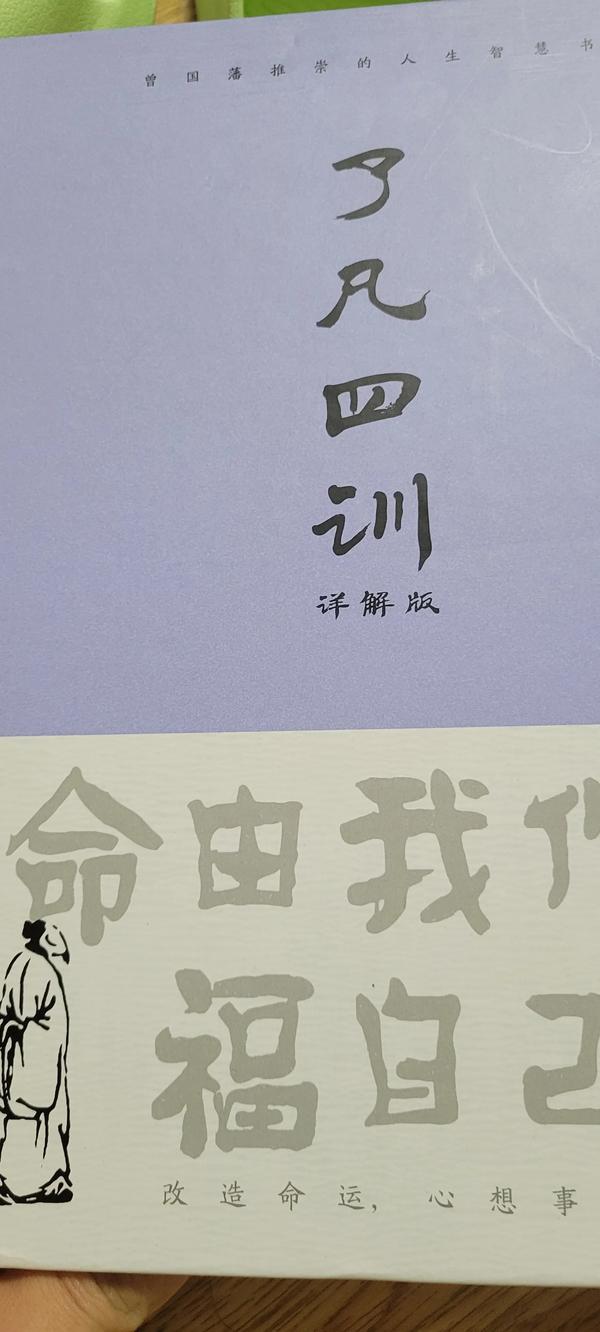 曾国藩推崇的人生智慧书
了凡四训
详解版
命由我作
福自己
改造命运，心想事